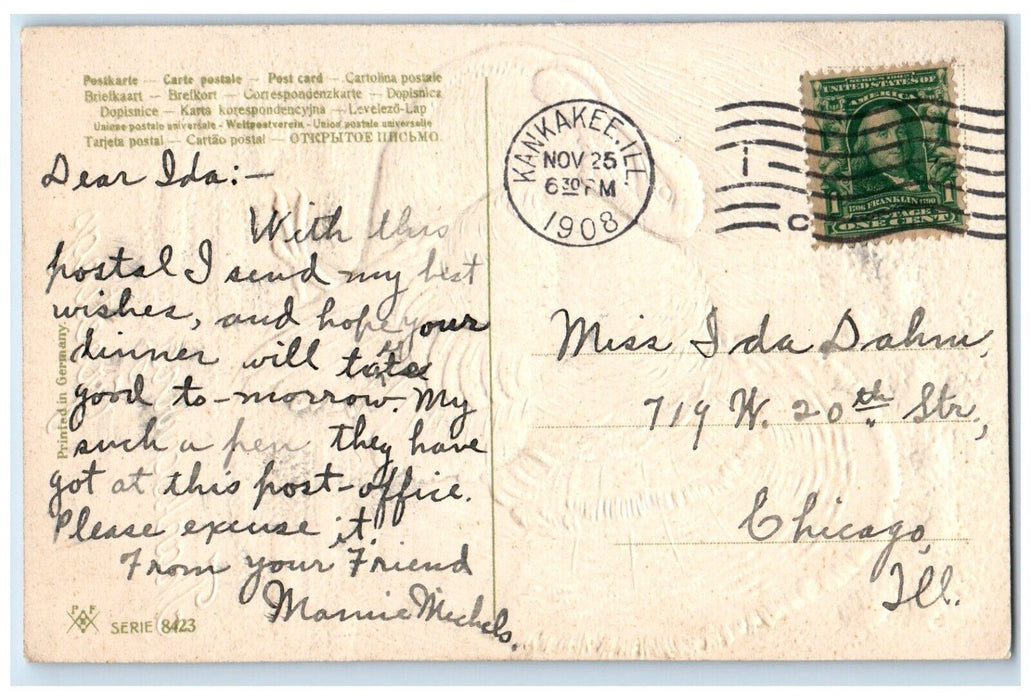 Postkarte — Carte postale — Post card — Cartolina postale
Briefkaart — Brefkort — Correspondenzkarte — Dopisnica
Dopisnice — Karta korespondencyjna — Levelező-Lap
Unione postale universale - Weltpostverein - Union postale universelle
Tarjeta postal — Cartão postal — ОТКРЫТОЕ ПИСЬМО.
Dear Ida:—
With this
postal I send my best
wishes, and hope your
dinner will taste
good to-morrow. My
such a pen they have
got at this post-office.
Please excuse it.
From your Friend
Mamie Michels.
Printed in Germany
P F
SERIE 8423
KANKAKEE, ILL.
NOV 25
6 30 PM
1908
1
C
SERIES 1902
UNITED STATES OF
AMERICA
1706 FRANKLIN 1790
POSTAGE
1 ONE CENT 1
Miss Ida Dahm,
719 W. 20th Str,
Chicago,
Ill.